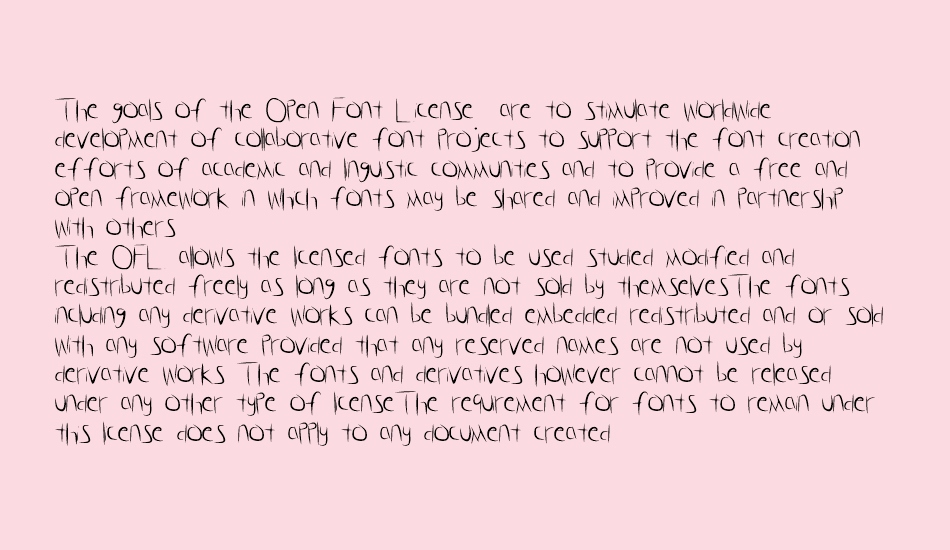 The goals of the Open Font License are to stimulate worldwide
development of collaborative font projects to support the font creation
efforts of academic and linguistic communities and to provide a free and
open framework in which fonts may be shared and improved in partnership
with others
The OFL allows the licensed fonts to be used studied modified and
redistributed freely as long as they are not sold by themselvesThe fonts
including any derivative works can be bundled embedded redistributed and or sold
with any software provided that any reserved names are not used by
derivative works The fonts and derivatives however cannot be released
under any other type of licenseThe requirement for fonts to remain under
this license does not apply to any document created